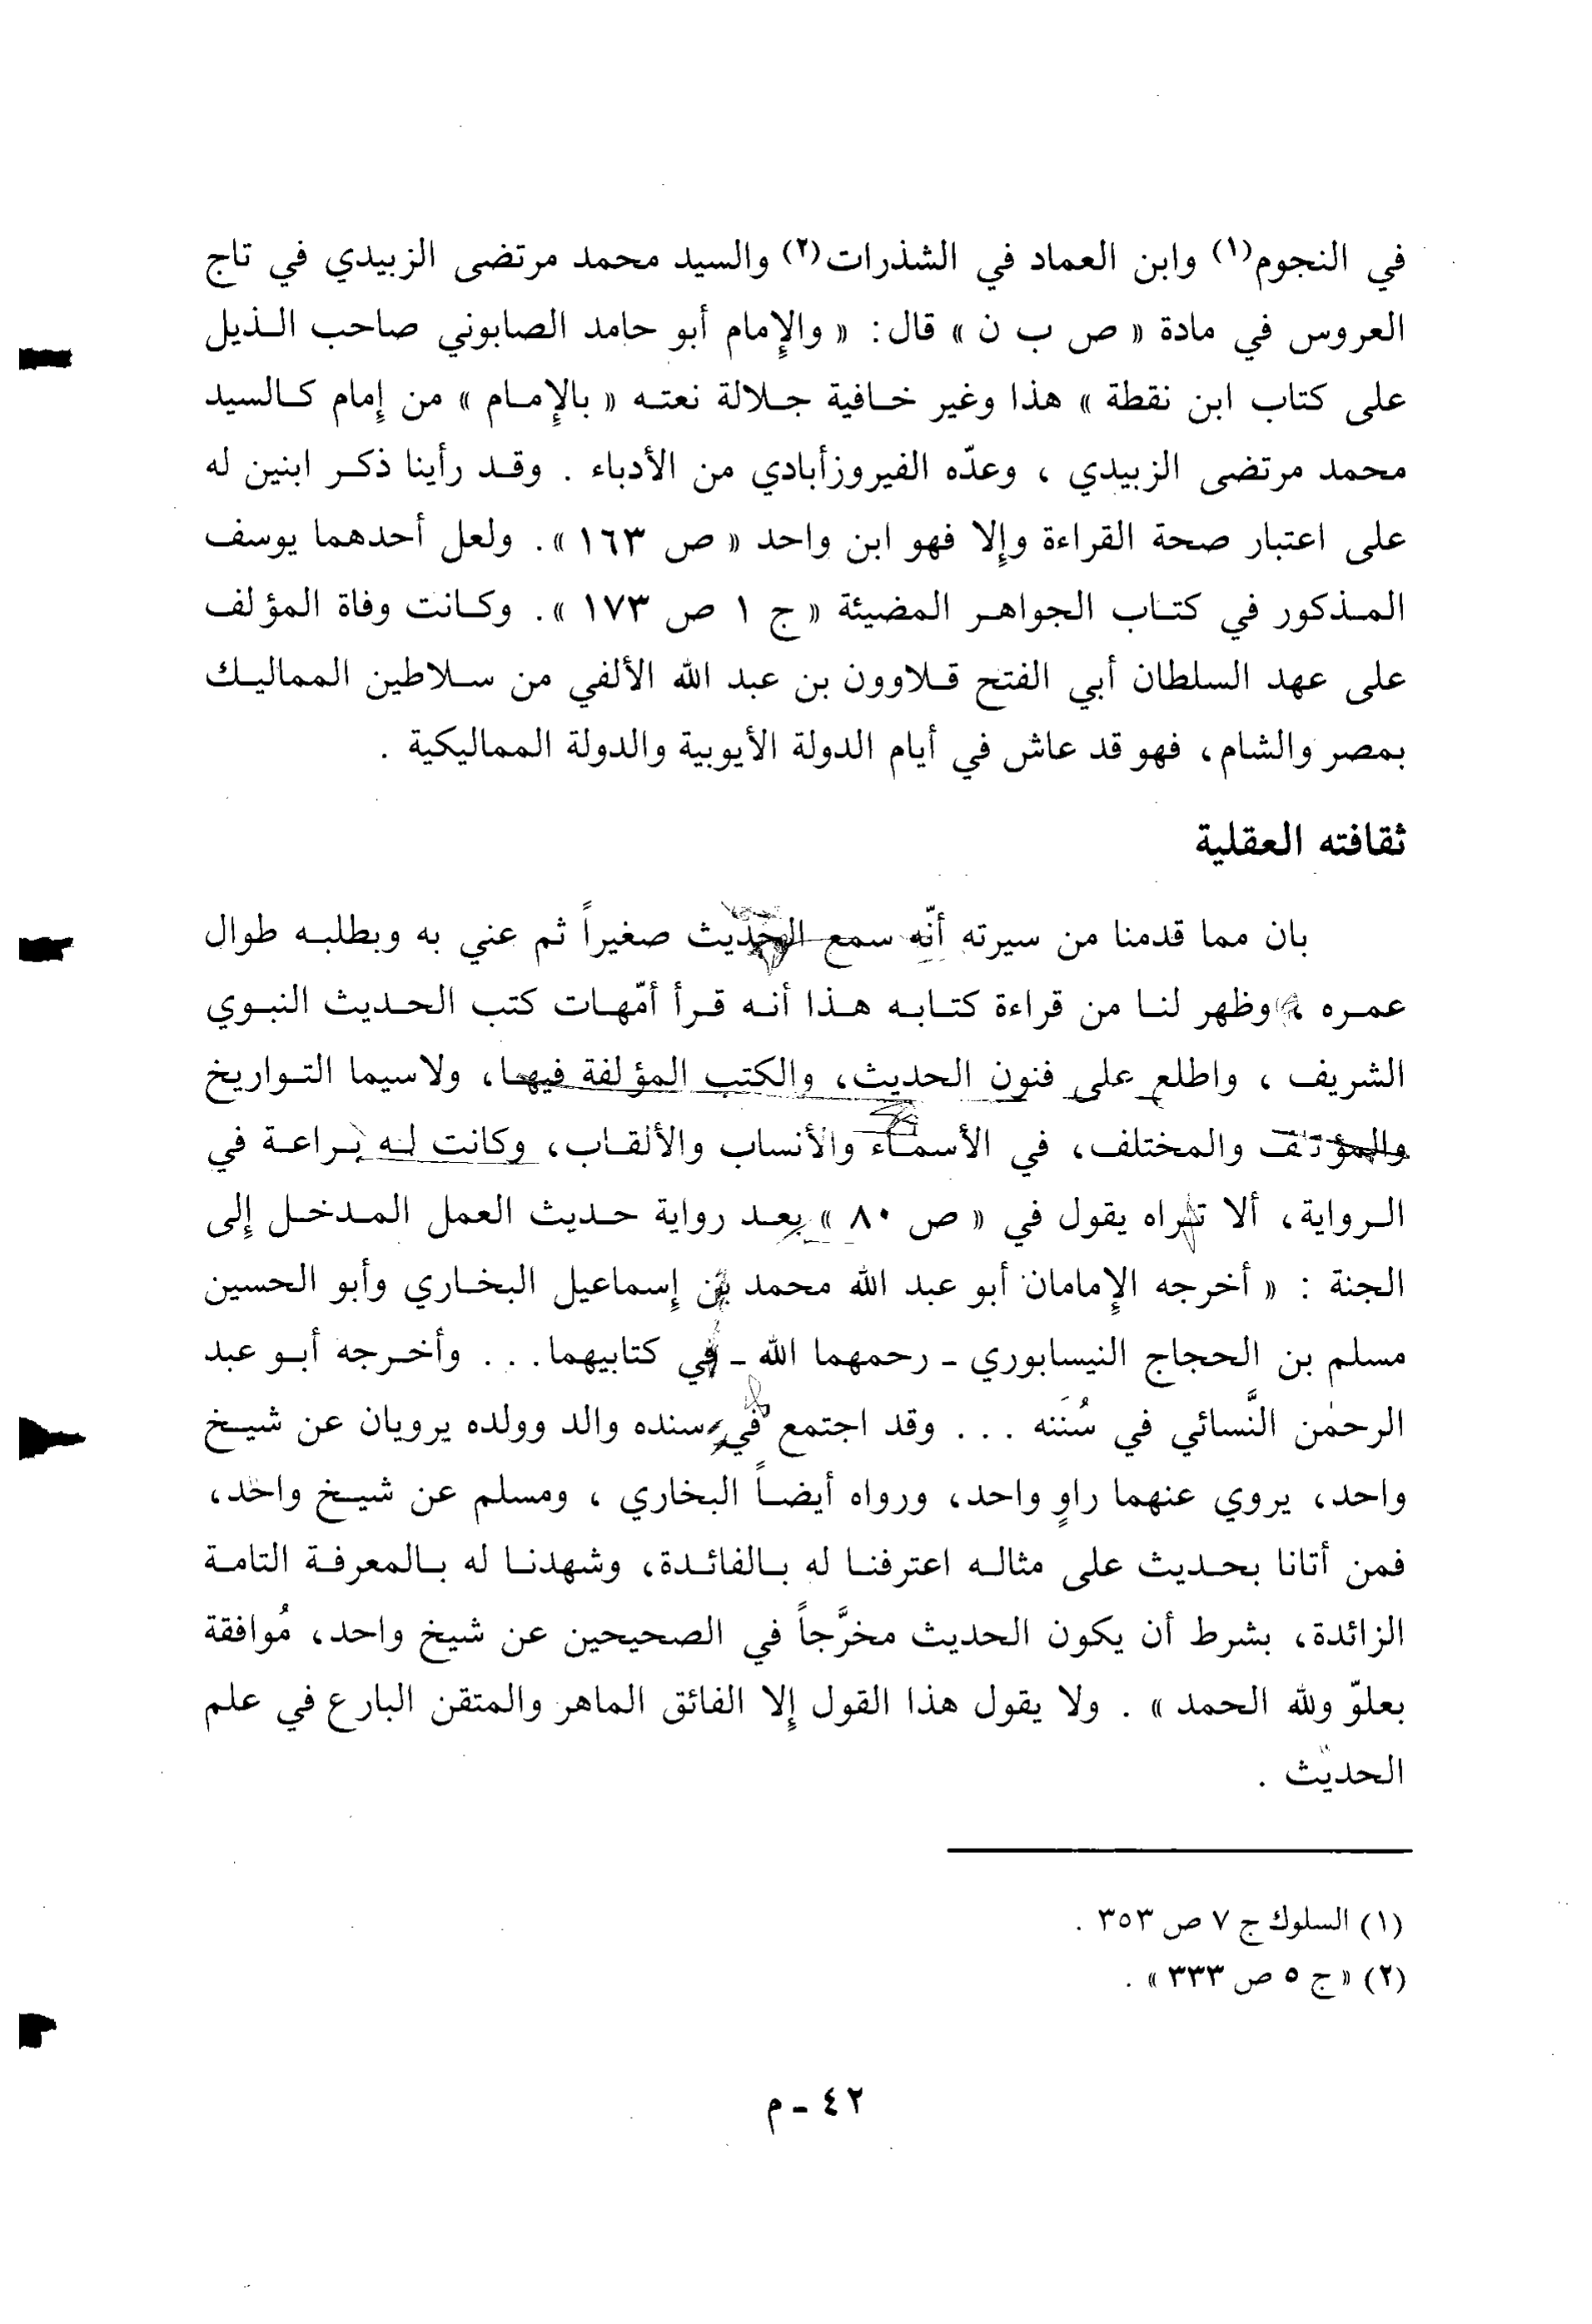 في النجوم(١) وابن العماد في الشذرات(٢) والسيد محمد مرتضى الزبيدي في تاج
العروس في مادة « ص ب ن » قال: « والإمام أبو حامد الصابوني صاحب الذيل
على كتاب ابن نقطة » هذا وغير خافية جلالة نعته « بالإمام » من إمام كالسيد
محمد مرتضى الزبيدي ، وعدّه الفيروزأبادي من الأدباء . وقد رأينا ذكر ابنين له
على اعتبار صحة القراءة وإلا فهو ابن واحد « ص ١٦٣ ». ولعل أحدهما يوسف
المذكور في كتاب الجواهر المضيئة « ج ١ ص ١٧٣ ». وكانت وفاة المؤلف
على عهد السلطان أبي الفتح قلاوون بن عبد الله الألفي من سلاطين المماليك
بمصر والشام، فهو قد عاش في أيام الدولة الأيوبية والدولة المماليكية .
ثقافته العقلية
بان مما قدمنا من سيرته أنّه سمع الحديث صغيراً ثم عني به وبطلبه طوال
عمره ، وظهر لنا من قراءة كتابه هذا أنه قرأ أمّهات كتب الحديث النبوي
الشريف ، واطلع على فنون الحديث، والكتب المؤلفة فيها، ولاسيما التواريخ
والمؤتلف والمختلف، في الأسماء والأنساب والألقاب، وكانت له براعة في
الرواية، ألا تراه يقول في « ص ٨٠ » بعد رواية حديث العمل المدخل إلى
الجنة : « أخرجه الإمامان أبو عبد الله محمد بن إسماعيل البخاري وأبو الحسين
مسلم بن الحجاج النيسابوري ـ رحمهما الله ـ في كتابيهما. . . وأخرجه أبو عبد
الرحمٰن النَّسائي في سُنَنه . . . وقد اجتمع في سنده والد وولده يرويان عن شيخ
واحد، يروي عنهما راوٍ واحد، ورواه أيضاً البخاري ، ومسلم عن شيخ واحد،
فمن أتانا بحديث على مثاله اعترفنا له بالفائدة، وشهدنا له بالمعرفة التامة
الزائدة، بشرط أن يكون الحديث مخرَّجاً في الصحيحين عن شيخ واحد، مُوافقة
بعلوّ ولله الحمد » . ولا يقول هذا القول إلا الفائق الماهر والمتقن البارع في علم
الحديث .
(١) السلوك ج ٧ ص ٣٥٣ .
(٢) « ج ٥ ص ٣٣٣ » .
٤٢ ـ م